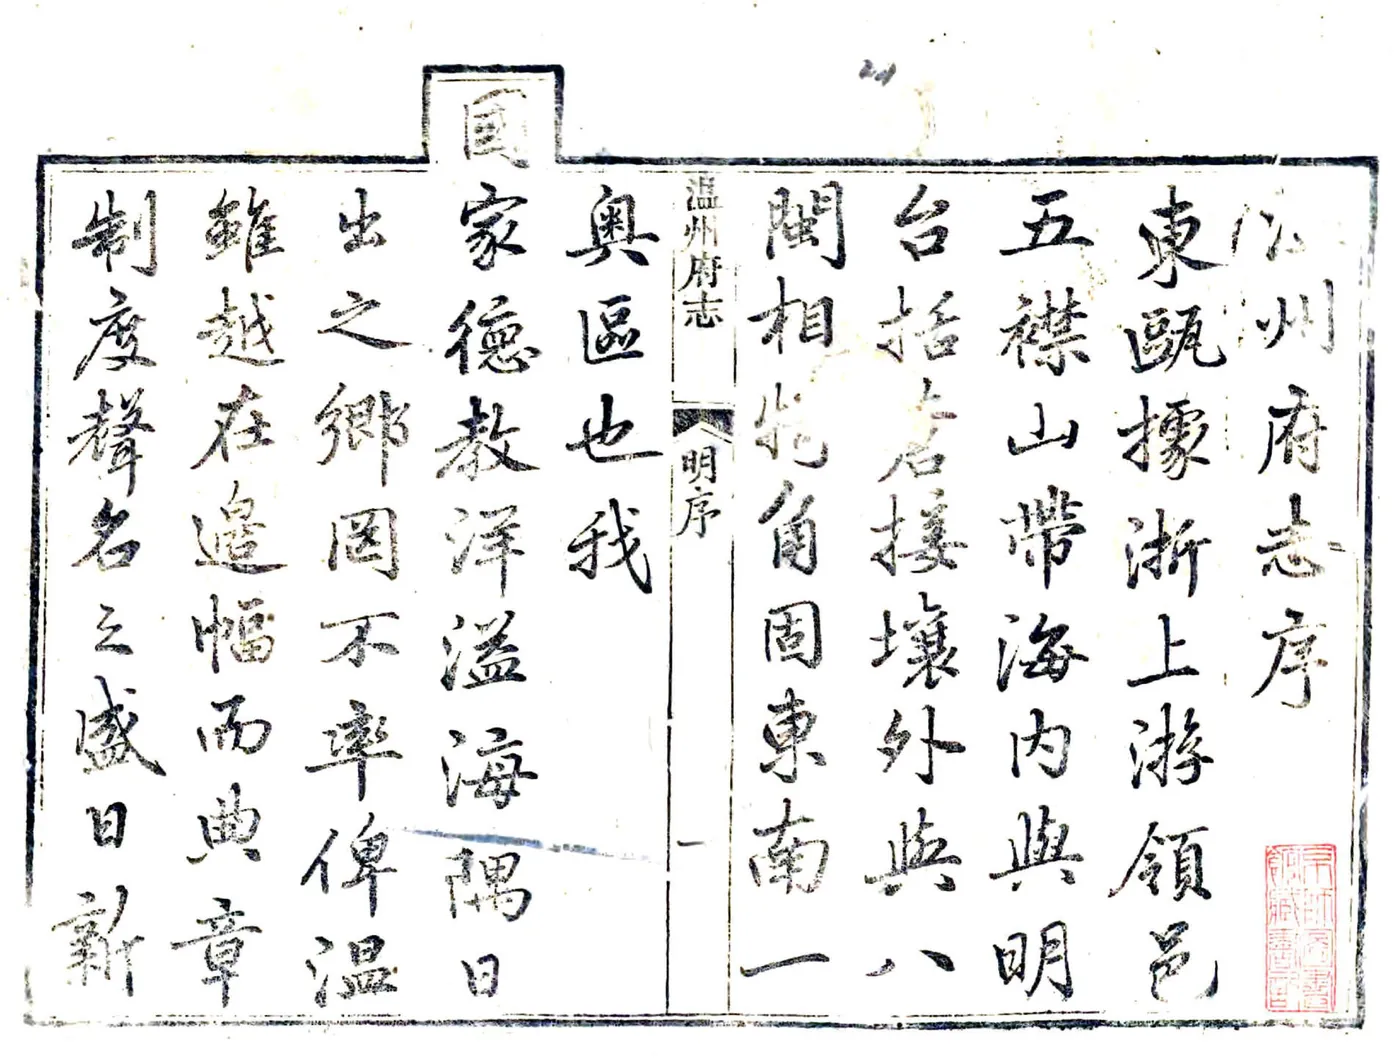 温州府志序
東甌據浙上游領邑
五襟山帶海内與明
台括蒼接壤外與八
閩相犄角固東南一
奥區也我
温州府志
明序
一
國
家德教洋溢海隅日
出之鄉罔不率俾温
雖越在邉幅而典章
制度聲名之盛日新